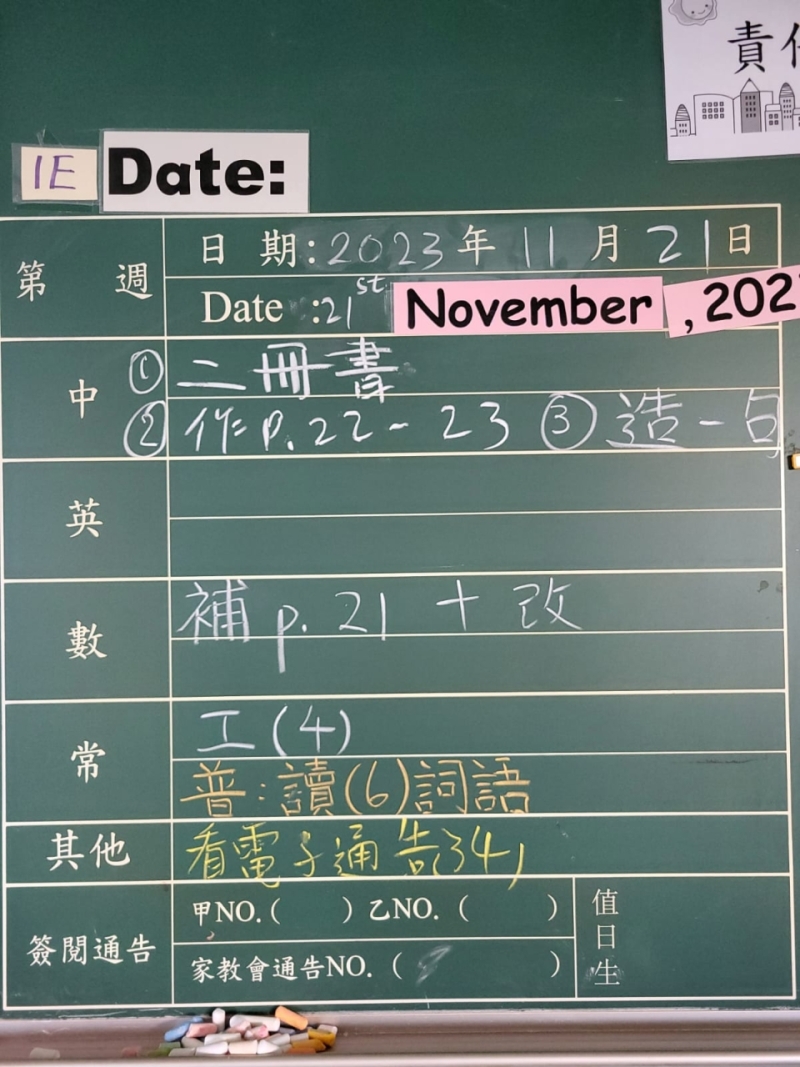 責任
1E Date:
第 週
日 期: 2023 年 11 月 21 日
Date : 21st November , 202
中
① 二冊書
② 作 P.22 - 23 ③ 造一句
英
數
補 p. 21 + 改
常
工(4)
普:讀(6)詞語
其他
看電子通告34,
簽閱通告
甲NO.( ) 乙NO. ( )
家教會通告NO. ( )
值日生